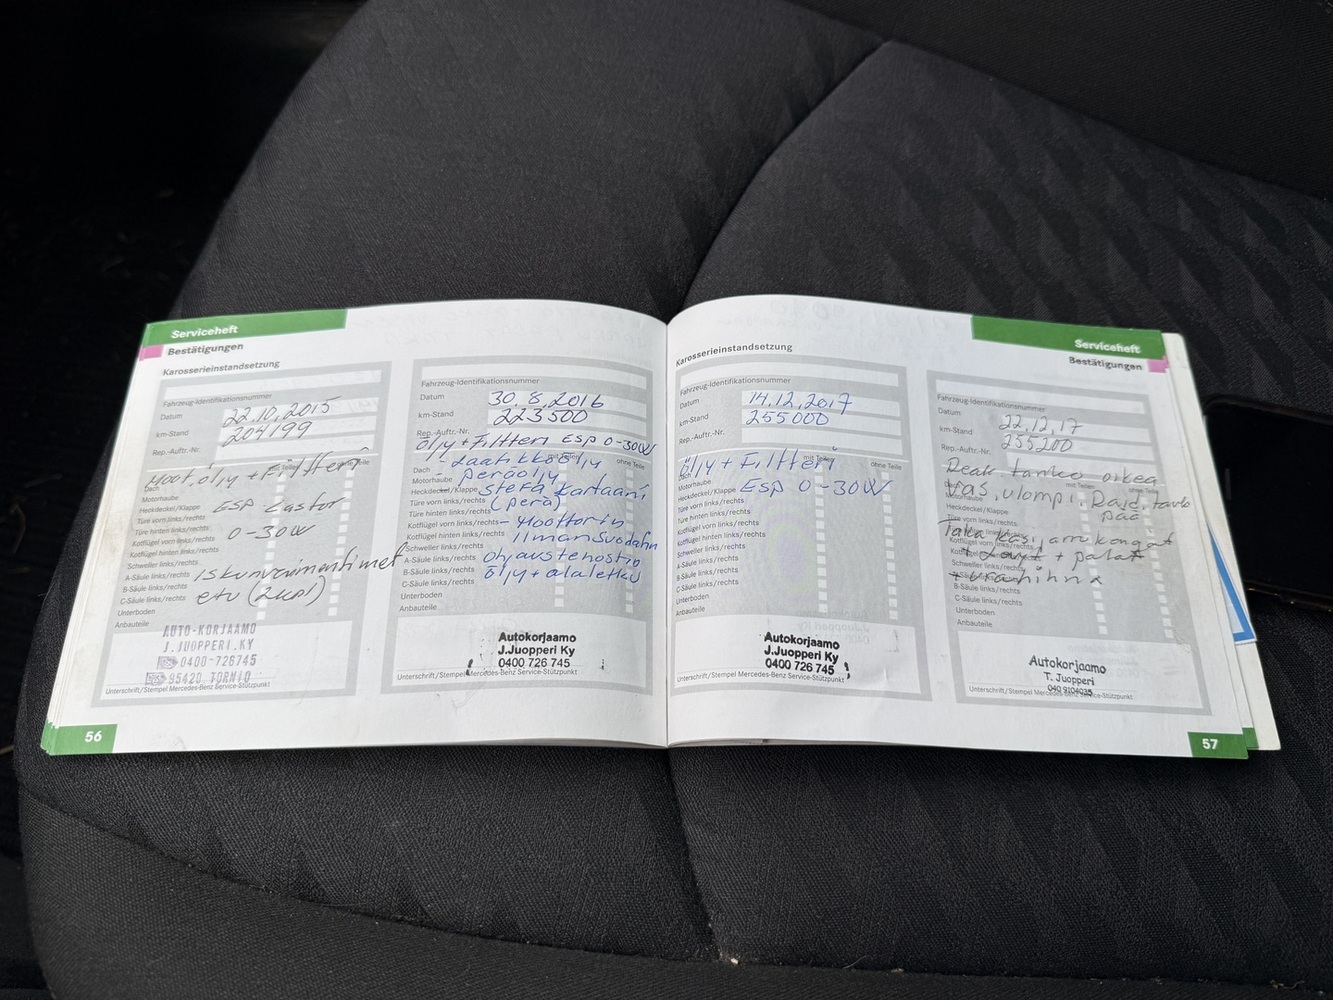 Serviceheft
Bestätigungen
Karosserieinstandsetzung
Fahrzeug-Identifikationsnummer
Datum 22.10.2015
km-Stand 204199
Rep.-Auftr.-Nr.
Moot.öljy + Filtteri
mit Teilen ohne Teile
Dach
Motorhaube
Heckdeckel/Klappe ESP Castor
Türe vorn links/rechts
Türe hinten links/rechts 0-30W
Kotflügel vorn links/rechts
Kotflügel hinten links/rechts
Schweller links/rechts
A-Säule links/rechts Iskunvaimentimet
B-Säule links/rechts etu (2kpl)
C-Säule links/rechts
Unterboden
Anbauteile
AUTO-KORJAAMO
J.JUOPPERI.KY
0400-726745
95420 TORNIO
Unterschrift/Stempel Mercedes-Benz Service-Stützpunkt
56
Fahrzeug-Identifikationsnummer
Datum 30.8.2016
km-Stand 223500
Rep.-Auftr.-Nr.
Öljy + Filtteri ESP 0-30W
mit Teilen ohne Teile
Dach - Laatikkoöljy
Motorhaube - peräöljy
Heckdeckel/Klappe Stefa kartaani
Türe vorn links/rechts (perä)
Türe hinten links/rechts
Kotflügel vorn links/rechts - Moottorin
Kotflügel hinten links/rechts Ilmansuodatin
Schweller links/rechts
A-Säule links/rechts Ohjaustehostin
B-Säule links/rechts öljy + alaletku
C-Säule links/rechts
Unterboden
Anbauteile
Autokorjaamo
J.Juopperi Ky
0400 726 745
Unterschrift/Stempel Mercedes-Benz Service-Stützpunkt
Karosserieinstandsetzung
Fahrzeug-Identifikationsnummer
Datum 14.12.2017
km-Stand 255000
Rep.-Auftr.-Nr.
Öljy + Filtteri
mit Teilen ohne Teile
Dach
Motorhaube
Heckdeckel/Klappe ESP 0-30W
Türe vorn links/rechts
Türe hinten links/rechts
Kotflügel vorn links/rechts
Kotflügel hinten links/rechts
Schweller links/rechts
A-Säule links/rechts
B-Säule links/rechts
C-Säule links/rechts
Unterboden
Anbauteile
Autokorjaamo
J.Juopperi Ky
0400 726 745
Unterschrift/Stempel Mercedes-Benz Service-Stützpunkt
Serviceheft
Bestätigungen
Fahrzeug-Identifikationsnummer
Datum 22.12.17
km-Stand 255200
Rep.-Auftr.-Nr.
Reak tanko oikea
vas, ulompi. Raid.tanko
pää
Taka käsijarrukengät
+ palat
C-Säule links/rechts
Unterboden
Anbauteile
Autokorjaamo
T. Juopperi
040 9104025
Unterschrift/Stempel Mercedes-Benz Service-Stützpunkt
57